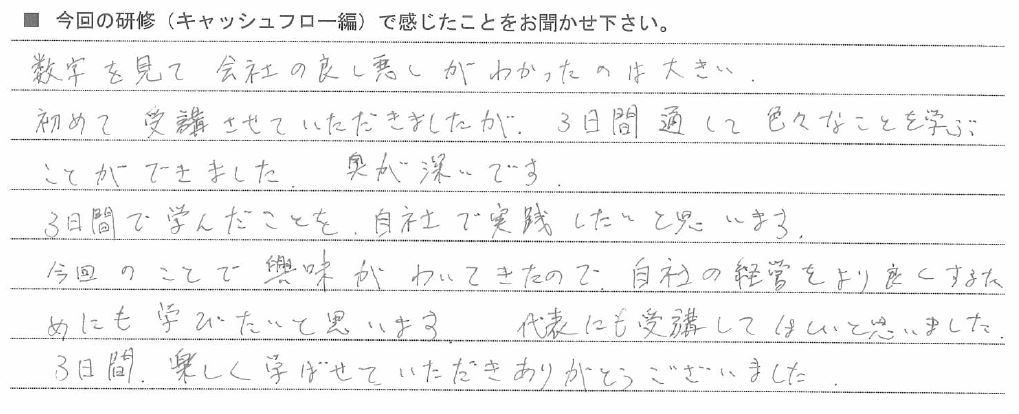 ■ 今回の研修（キャッシュフロー編）で感じたことをお聞かせ下さい。
数字を見て 会社の良し悪しがわかったのは大きい.
初めて受講させていただきましたが、3日間通して色々なことを学ぶ
ことができました. 奥が深いです.
3日間で学んだことを、自社で実践したいと思います.
今回のことで興味がわいてきたので、自社の経営をより良くするた
めにも学びたいと思います. 代表にも受講してほしいと思いました.
3日間、楽しく学ばせていただきありがとうございました.